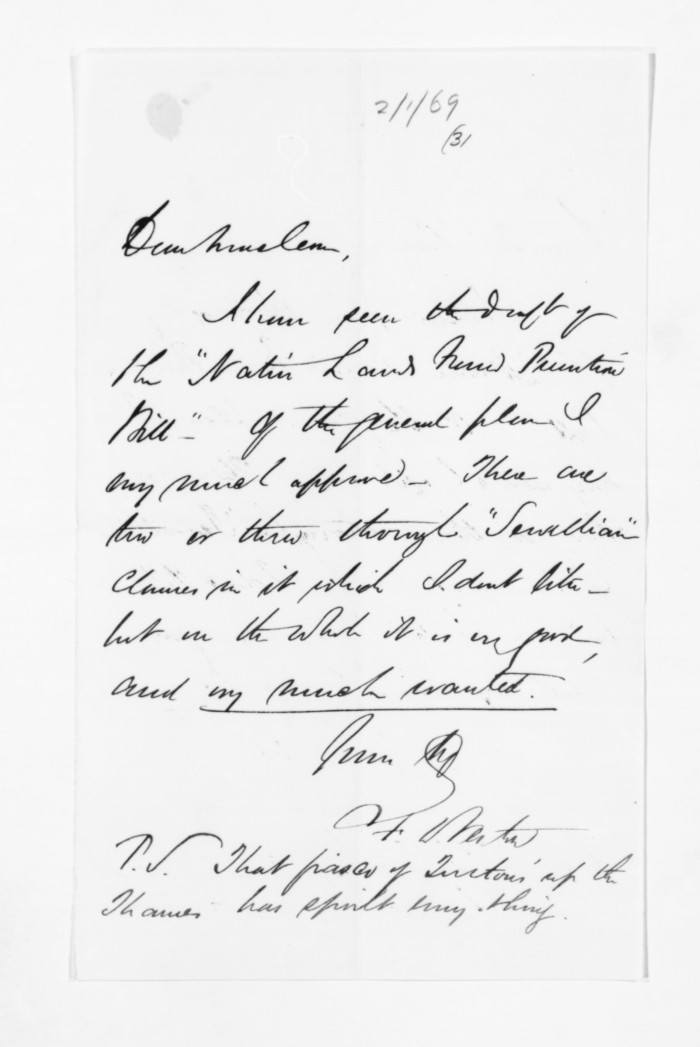 2/1/69
(31
Dear McLean,
I have seen the Draft of
the "Native Lands Fraud Prevention
Bill" - Of the general plan I
very much approve - There are
two or three though "Sewellian"
clauses in it which I dont like -
but on the whole it is very good,
and very much wanted.
Yours
F. D.
P.S. That fiasco of up the
Thames has spoilt every thing.